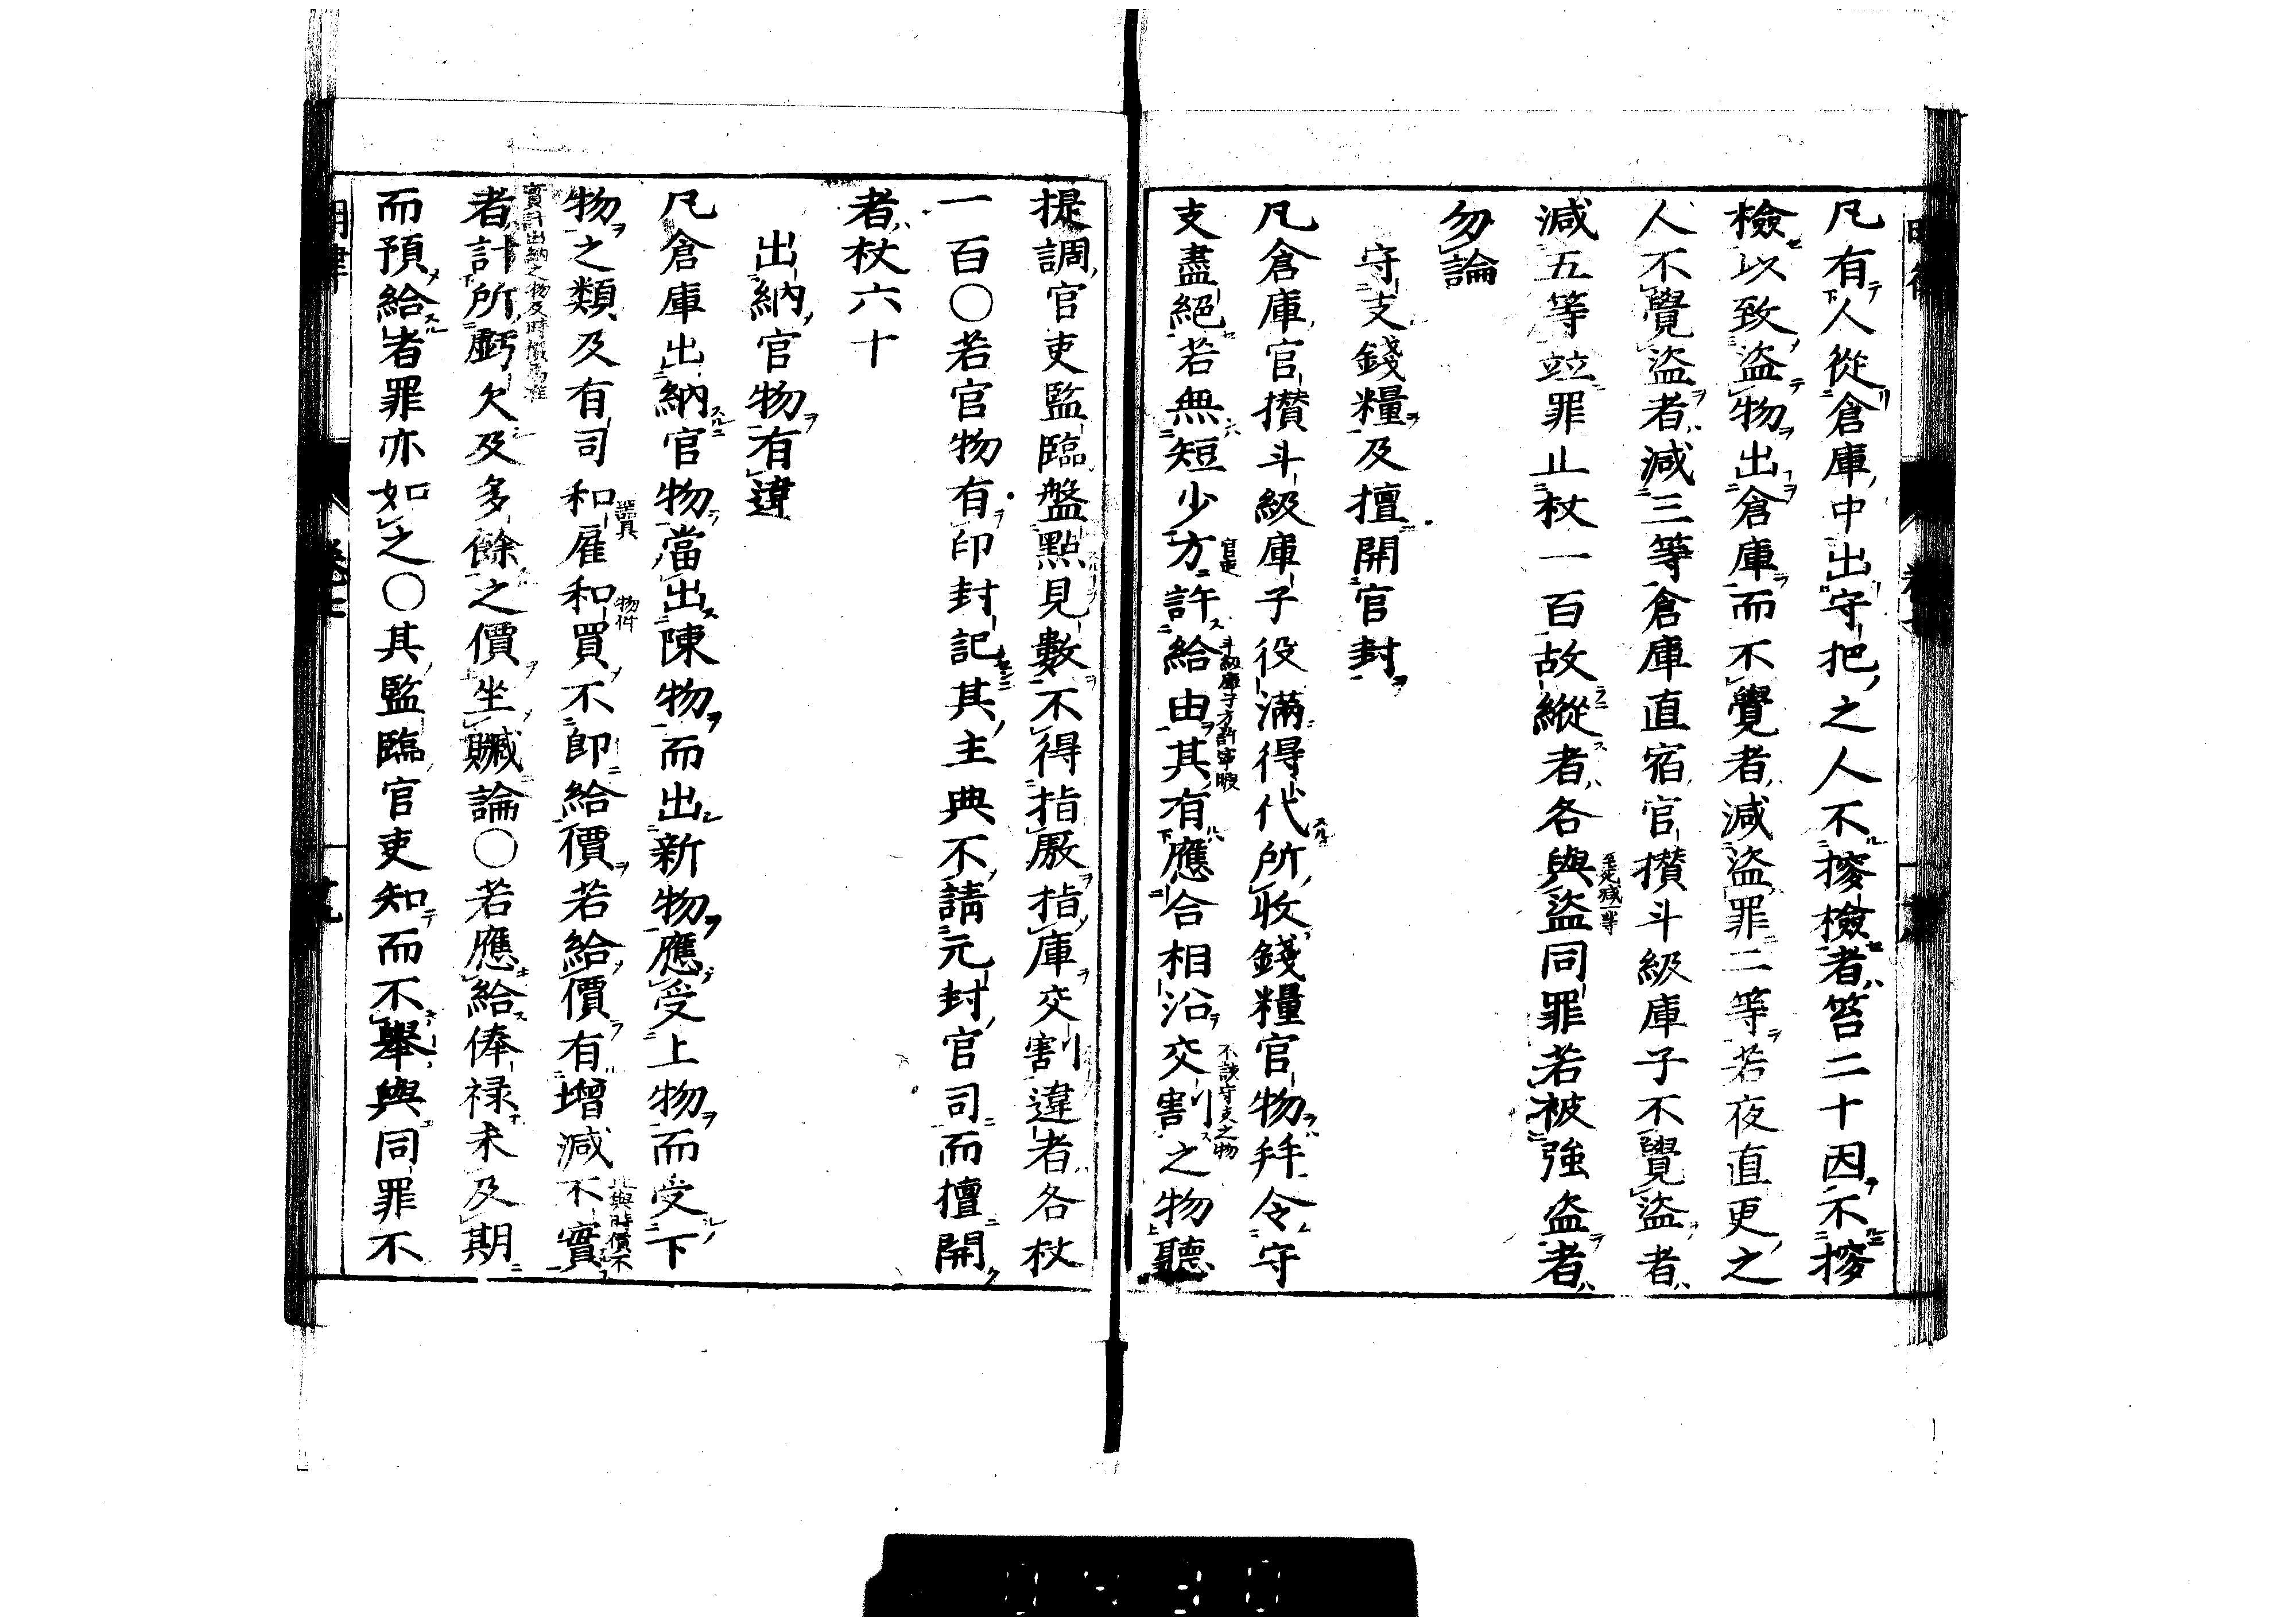 凡有人從倉庫中出守把之人不搜檢者笞二十因不搜
檢以致盜物出倉庫而不覺者減盜罪二等若夜直更之
人不覺盜者減三等倉庫直宿官攢斗級庫子不覺盜者
減五等竝罪止杖一百故縱者各與盜同罪至死減一等若被強盗者
勿論
守支錢糧及擅開官封
凡倉庫官攢斗級庫子役滿得代所收錢糧官物拜令守
支盡絕若無短少方官吏許給由斗級庫子方許寧暇其有應合相沿交割之物不該守支之物聽
提調官吏監臨盤點見數不得指厫指庫交割違者各杖
一百〇若官物有印封記其主典不請元封官司而擅開
者杖六十
出納官物有違
凡倉庫出納官物當出陳物而出新物應受上物而受下
物之類及有司和雇器具和買物件不卽給價若給價有增減不實與時價不
者計所虧欠及多餘之價坐贓論〇若應給俸禄未及期
實計出納之物及時價高
而預給者罪亦如之〇其監臨官吏知而不舉與同罪不
明律